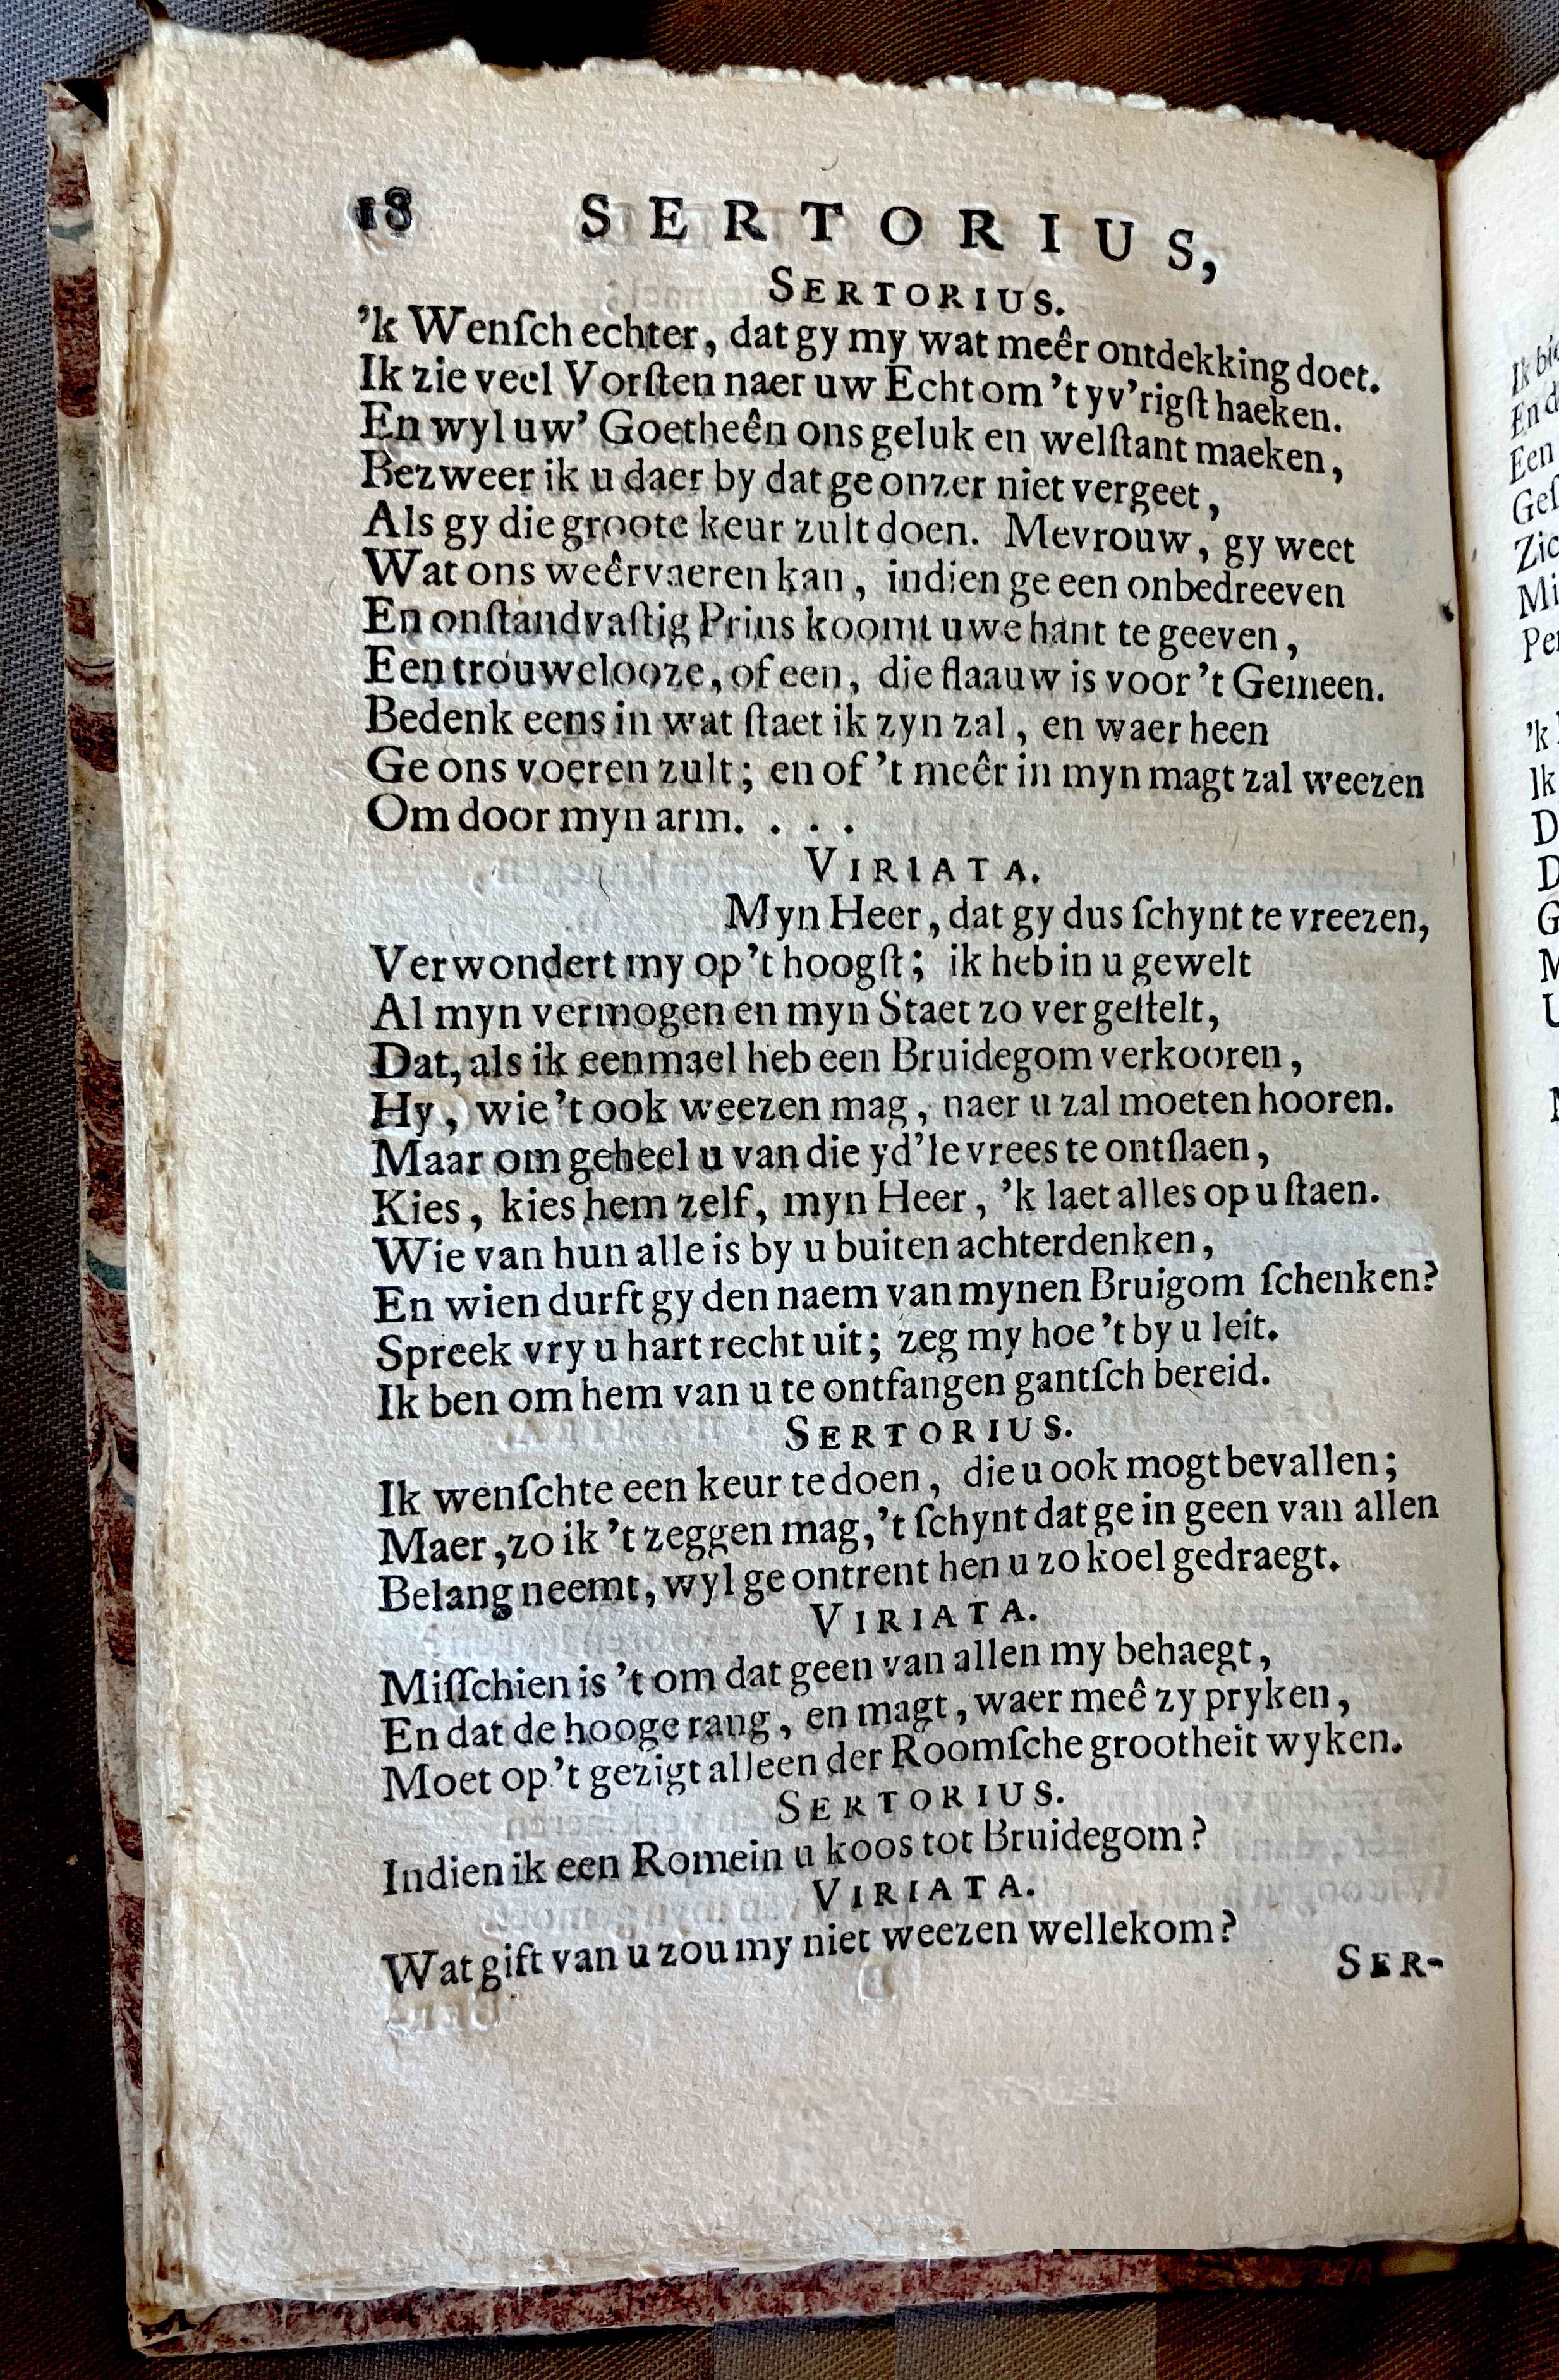 18 SERTORIUS,
SERTORIUS.
'k Wenſch echter, dat gy my wat meêr ontdekking doet.
Ik zie veel Vorſten naer uw Echt om 't yv'rigſt haeken.
En wyl uw' Goetheên ons geluk en welſtant maeken,
Bezweer ik u daer by dat ge onzer niet vergeet,
Als gy die groote keur zult doen. Mevrouw, gy weet
Wat ons weêrvaeren kan, indien ge een onbedreeven
En onſtandvaſtig Prins koomt uwe hant te geeven,
Een trouwelooze, of een, die flaauw is voor 't Gemeen.
Bedenk eens in wat ſtaet ik zyn zal, en waer heen
Ge ons voeren zult; en of 't meêr in myn magt zal weezen
Om door myn arm. . . .
VIRIATA.
Myn Heer, dat gy dus ſchynt te vreezen,
Verwondert my op 't hoogſt; ik heb in u gewelt
Al myn vermogen en myn Staet zo ver geſtelt,
Dat, als ik eenmael heb een Bruidegom verkooren,
Hy, wie 't ook weezen mag, naer u zal moeten hooren.
Maar om geheel u van die yd'le vrees te ontſlaen,
Kies, kies hem zelf, myn Heer, 'k laet alles op u ſtaen.
Wie van hun alle is by u buiten achterdenken,
En wien durft gy den naem van mynen Bruigom ſchenken?
Spreek vry u hart recht uit; zeg my hoe 't by u leit.
Ik ben om hem van u te ontfangen gantſch bereid.
SERTORIUS.
Ik wenſchte een keur te doen, die u ook mogt bevallen;
Maer, zo ik 't zeggen mag, 't ſchynt dat ge in geen van allen
Belang neemt, wyl ge ontrent hen u zo koel gedraegt.
VIRIATA.
Miſſchien is 't om dat geen van allen my behaegt,
En dat de hooge rang, en magt, waer meê zy pryken,
Moet op 't gezigt alleen der Roomſche grootheit wyken.
SERTORIUS.
Indien ik een Romein u koos tot Bruidegom?
VIRIATA.
Wat gift van u zou my niet weezen wellekom?
SER-
Ik
En
Een
Geſ
Zic
Mi
'k
Ik
D
D
G
M